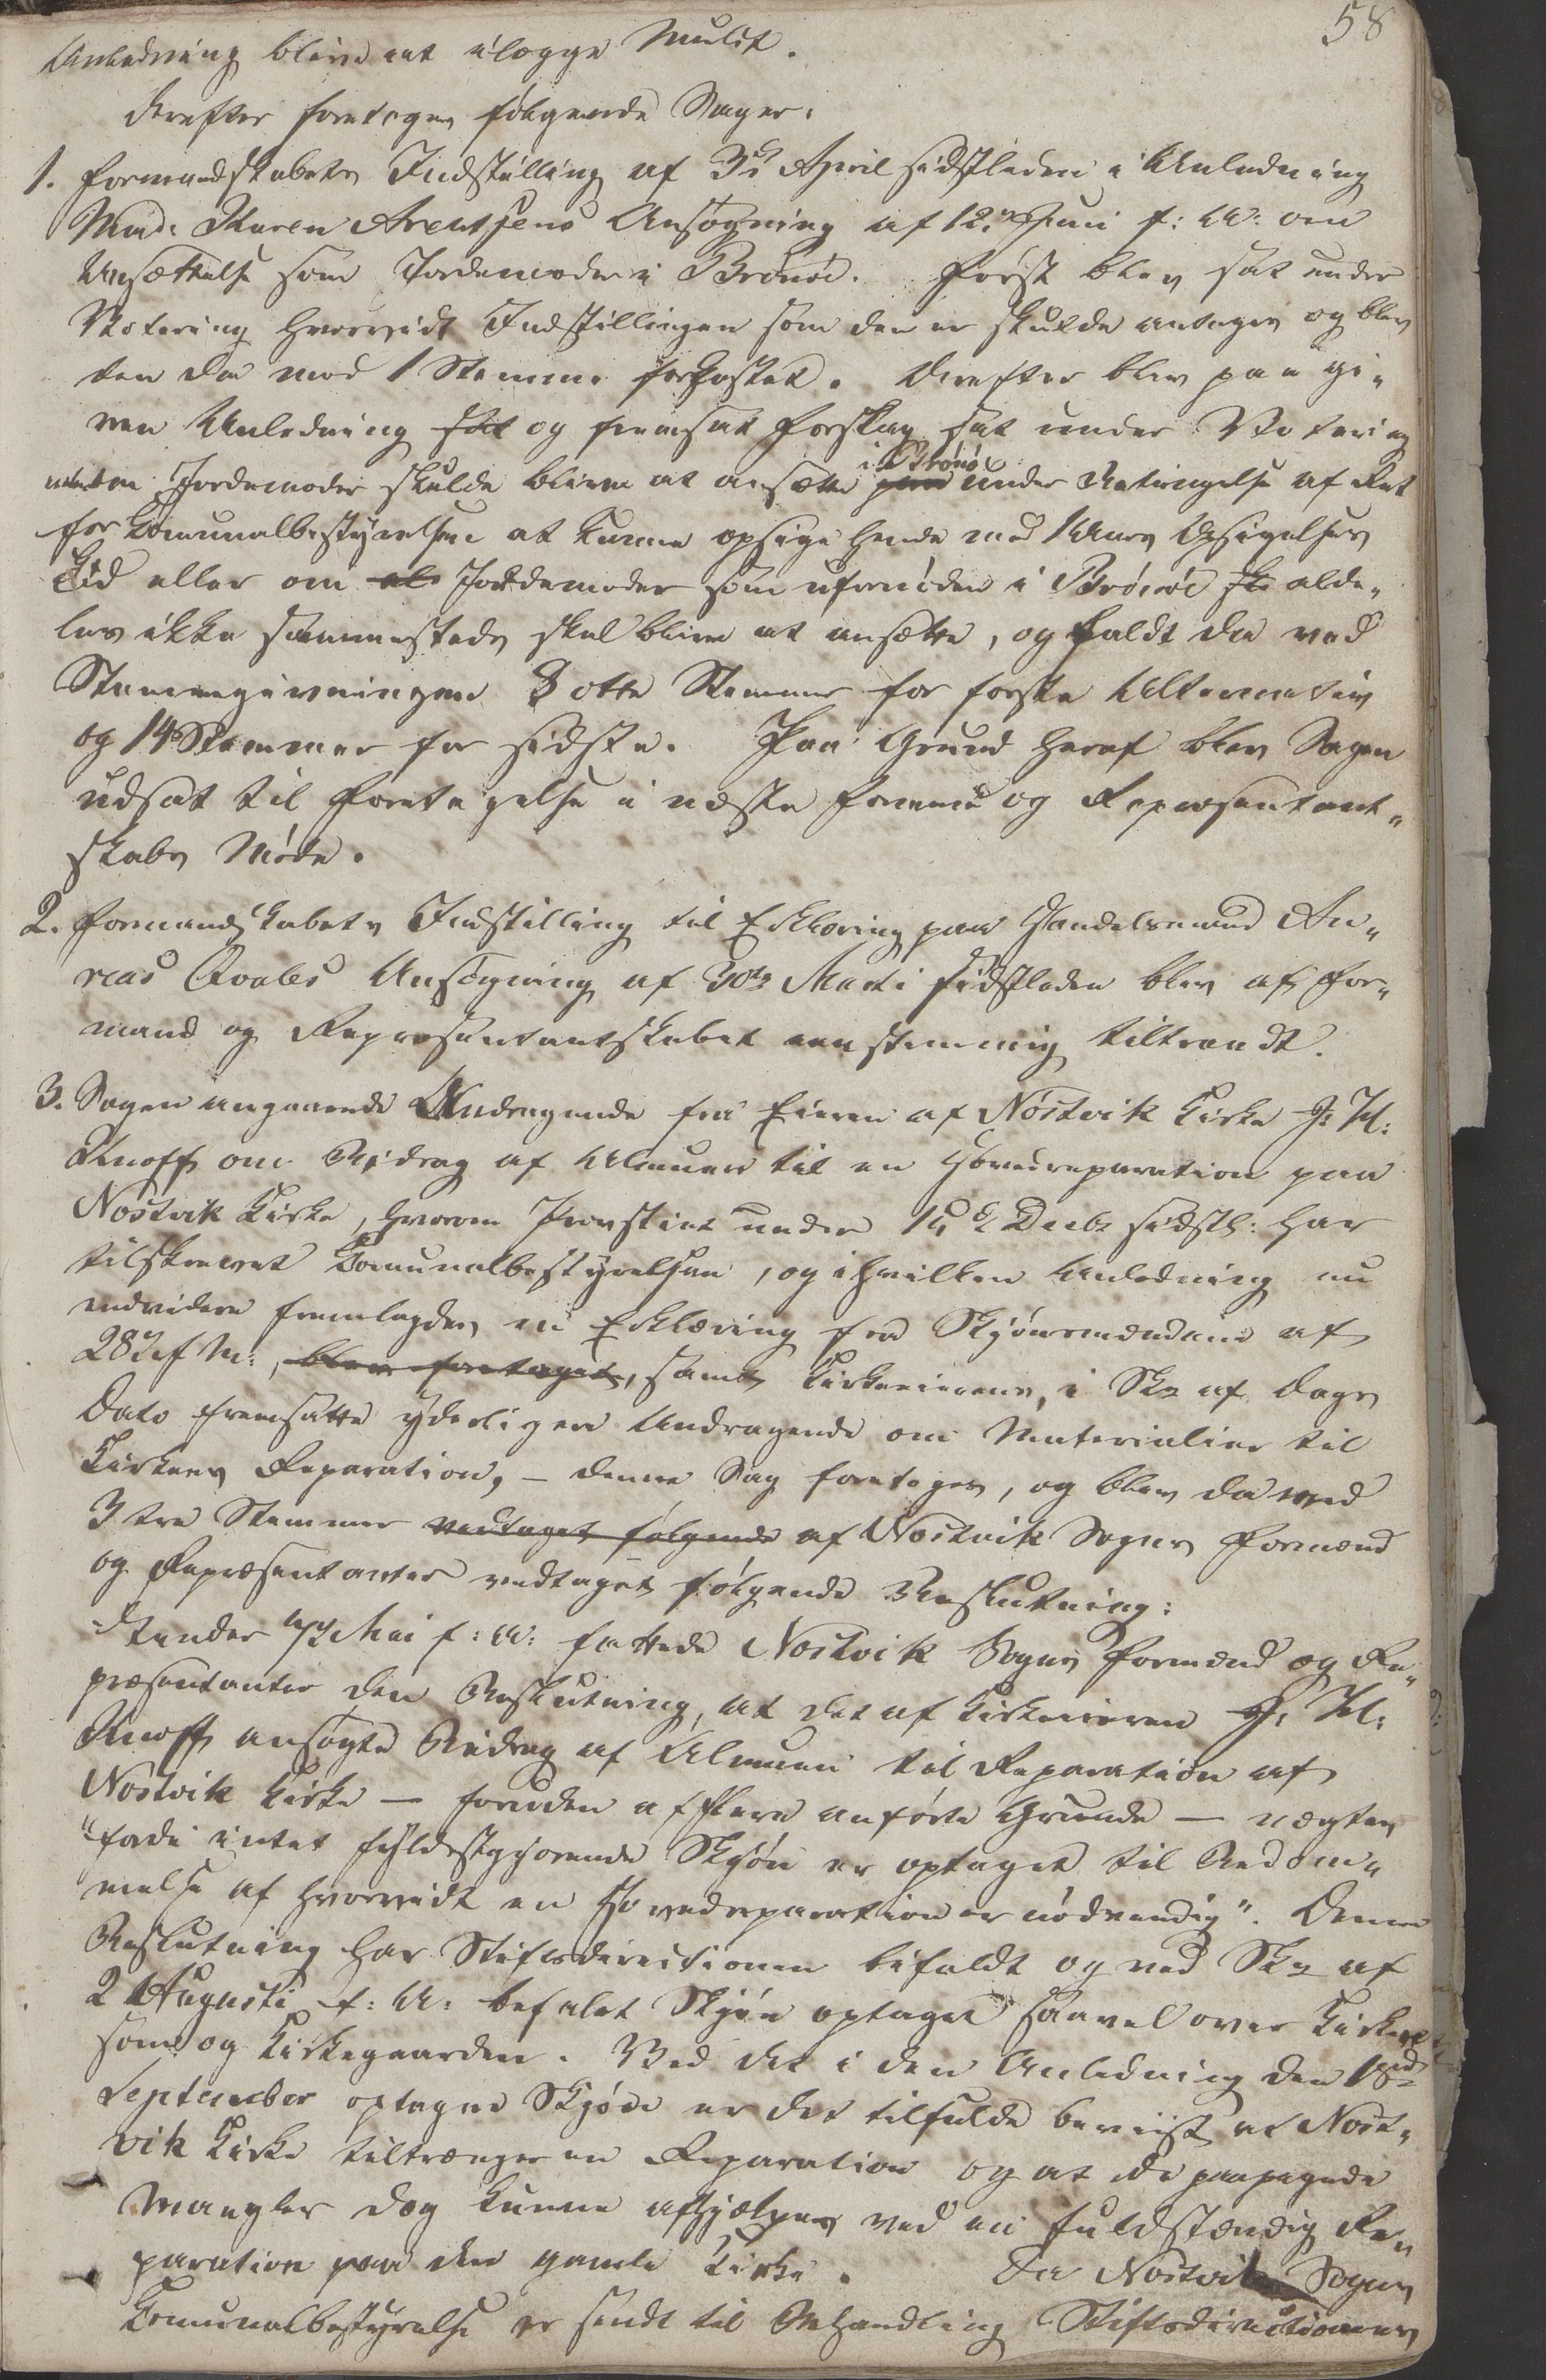 58
Anledning blive at ilægge Mulct.
Derefter foretoges følgende Sager:
1. Formandskabets Indstilling af 3die April sidstleden i Anledning
Mad. Karen Arentsens Ansøgning af 12te Juni f: A: om
Ansættelse som Jordemoder i Brønø. Først blev sat under
Votering hvorvidt Indstillingen som den er skulde antages og blev
den da mod 1 Stemme forkastet. Derefter blev paa gi„
ven Anledning sat og fremsat Forslag sat under Votering
enten Jordemoder skulde blive at ansætte i Brønø under Betingelse af Ret
for Communalbestyrelsen at kunne opsige hende med 1 Aars Opsigelses
Tid eller om Jordemoder som ufornøden i Brønø alde„
les ikke sammesteds skal blive at ansætte, og faldt da ved
Stemmegivningen 8 otte Stemmer for første Alternativ
og 14 Stemmer for sidste. Paa Grund heraf blev Sagen
udsat til Foretagelse i næste Formand og Repræsentant„
skabs Møde.
2. Formandskabets Indstilling til Erklæring paa Handelsmand An„
reas Qvales Ansøgning af 30te Marti sidstleden blev af For„
mand og Repræsentantskabet eenstemmig tiltraadt.
3. Sagen angaaende Andragende fra Eieren af Nøstvik Kirke J: H:
Knoff om Bidrag af Almuen til en Hovedreparation paa
Nøstvik Kirke, hvorom Provstiet under 14de Decbr sidstl: har
tilskrevet Communalbestyrelsen, og i hvilken Anledning nu
endvidere fremlagdes en Erklæring fra Skjønsmændene af
28de f M:, blev foretaget, samt Kirkeeierens, i Skr af Dags
Dato fremsatte yderligere Andragende om Materialier til
Kirkens Reparation, – denne Sag foretoges, og blev da med
3 tre Stemmer vedtaget følgende af Nøstvik Sogns Formænd
og Repræsentanter vedtaget følgende Beslutning:
Under 7de Mai f: A: fattede Nøstvik Sogns Formænd og Re„
præsentanter den Beslutning, at det af Kirkeeieren J: H:
Knoff ansøgte Bidrag af Almuen til Reparation af
Nøstvik Kirke – foruden af flere anførte Grunde – nægtes
"fordi intet fyldestgjørende Skjøn er optaget til Bedøm„
melse af hvorvidt en Hovedreparation er nødvendig". Denne
Beslutning har Stiftsdirectionen bifaldt og ved Skr af
2 Augusti f: A: befalet Skjøn optaget saavel over Kirken
som og Kirkegaarden. Ved det i den Anledning den 18de
September optagne Skjøn er det tilfulde beviist at Nøst„
vik Kirke tiltrænger en Reparation og at de paapegede
Mangler dog kunne afhjælpes ved en fuldstændig Re„
paration paa den gamle Kirke. Da Nøstvik Sogns
Communalbestyrelse er sendt til Behandling Stiftsdirectionens